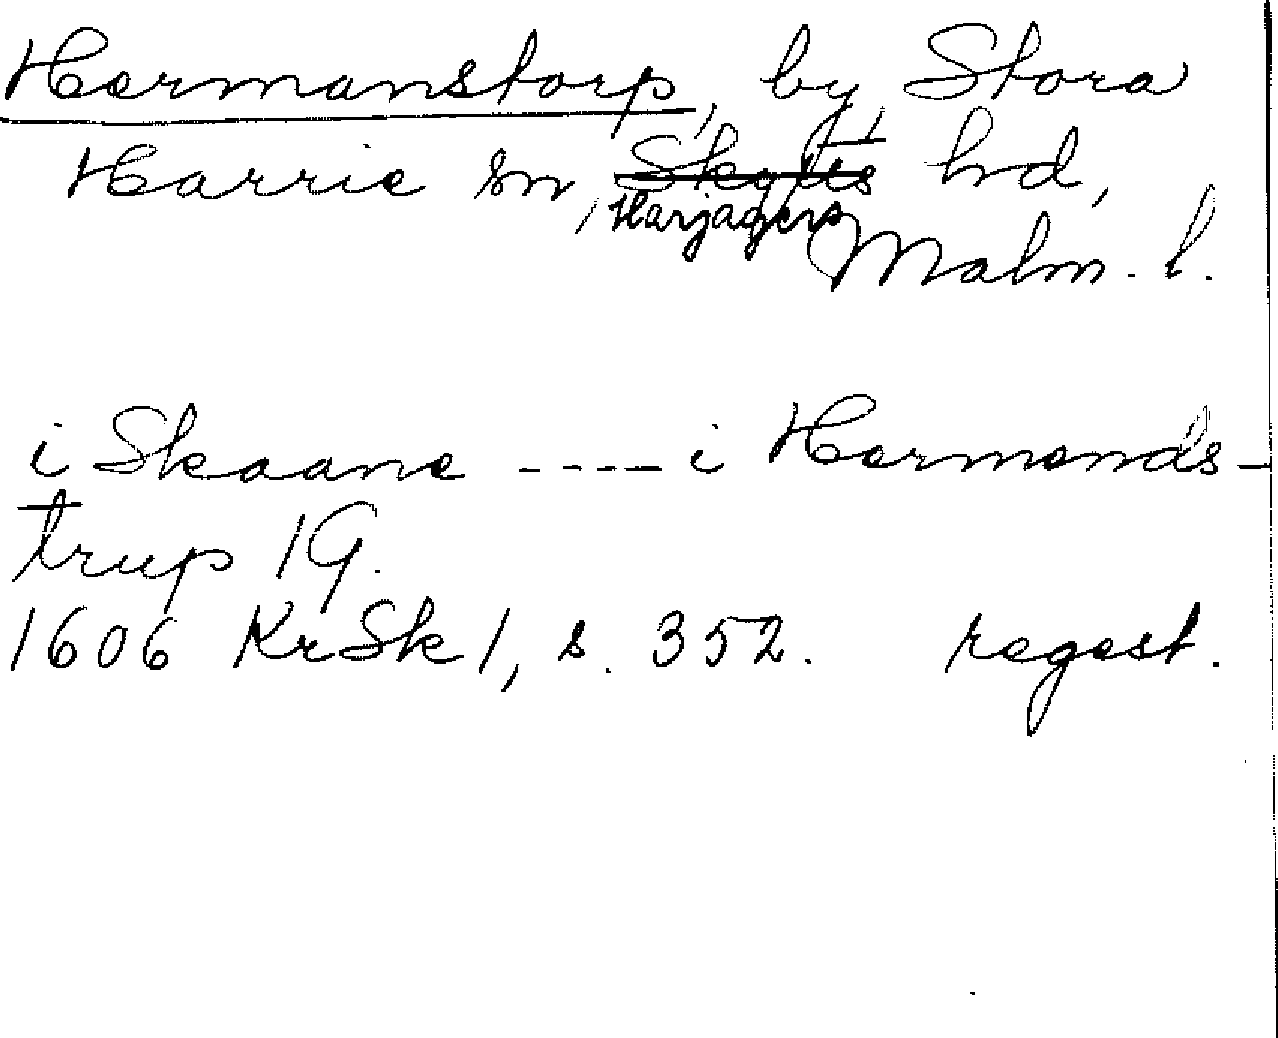 Hermanstorp, by, Stora
Harrie sn, Skytts hd,
Harjagers
Malm. l.
i Skaane ---- i Hermends-
trup 1 G.
1606 KrSk 1, s. 352. regest.